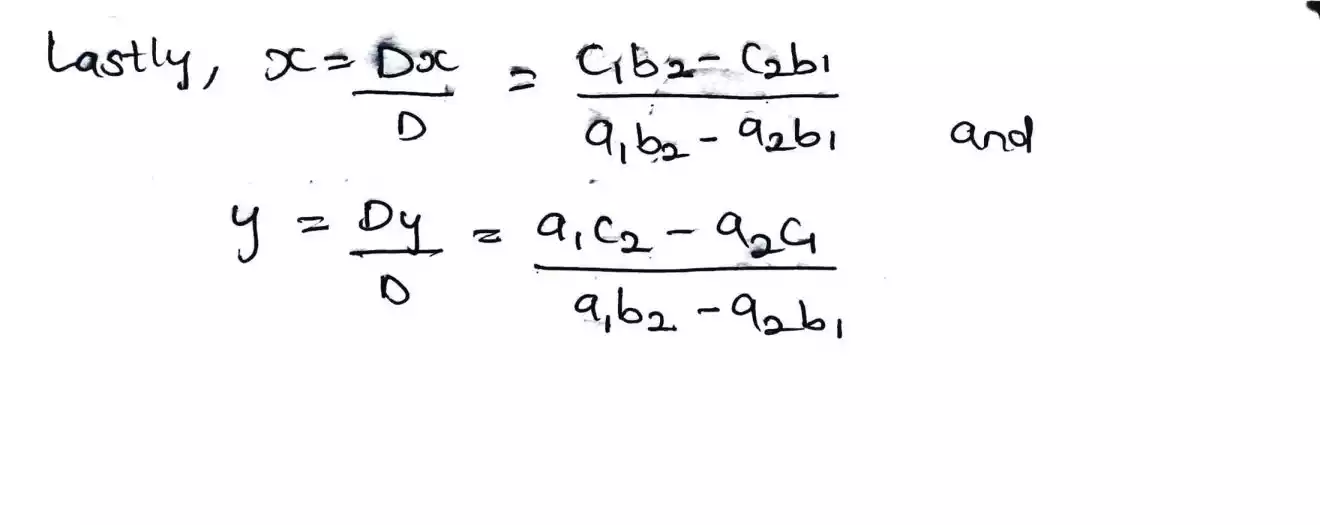 Lastly, x = Dx / D = c₁b₂ - c₂b₁ / a₁b₂ - a₂b₁ and
y = Dy / D = a₁c₂ - a₂c₁ / a₁b₂ - a₂b₁